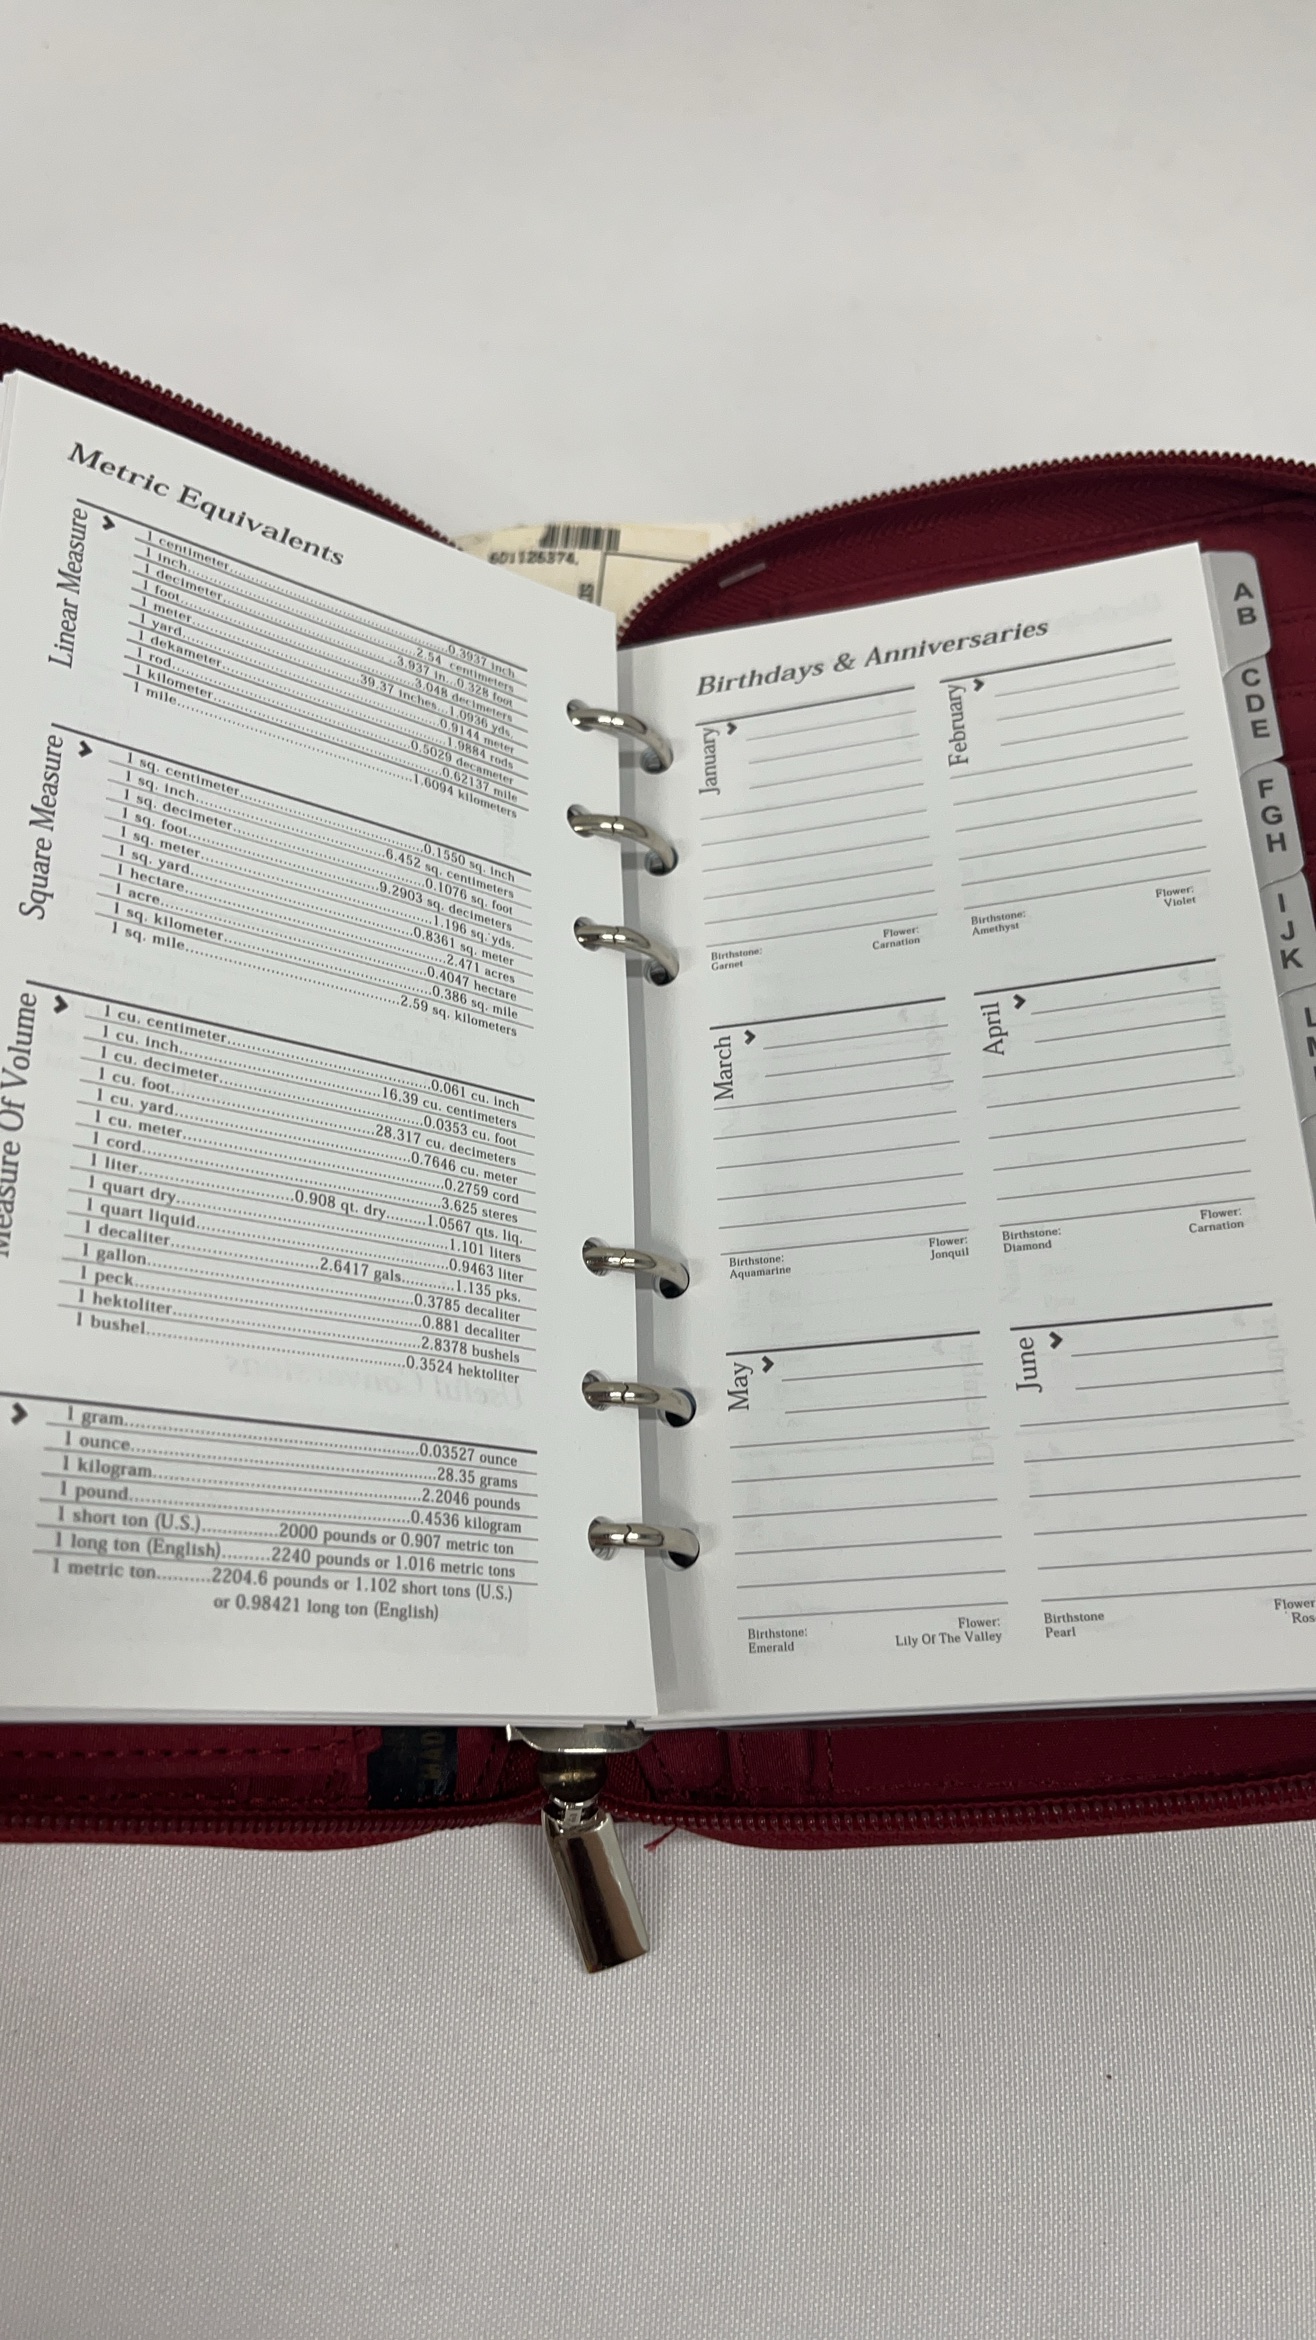 Metric Equivalents
Linear Measure
1 centimeter..........0.3937 inch
1 inch..........2.54 centimeters
1 decimeter..........3.937 in...0.328 foot
1 foot..........3.048 decimeters
1 meter..........39.37 inches...1.0936 yds.
1 yard..........0.9144 meter
1 dekameter..........1.9884 rods
1 rod..........0.5029 decameter
1 kilometer..........0.62137 mile
1 mile..........1.6094 kilometers
Square Measure
1 sq. centimeter..........0.1550 sq. inch
1 sq. inch..........6.452 sq. centimeters
1 sq. decimeter..........0.1076 sq. foot
1 sq. foot..........9.2903 sq. decimeters
1 sq. meter..........1.196 sq. yds.
1 sq. yard..........0.8361 sq. meter
1 hectare..........2.471 acres
1 acre..........0.4047 hectare
1 sq. kilometer..........0.386 sq. mile
1 sq. mile..........2.59 sq. kilometers
Measure Of Volume
1 cu. centimeter..........0.061 cu. inch
1 cu. inch..........16.39 cu. centimeters
1 cu. decimeter..........0.0353 cu. foot
1 cu. foot..........28.317 cu. decimeters
1 cu. yard..........0.7646 cu. meter
1 cu. meter..........0.2759 cord
1 cord..........3.625 steres
1 liter..........0.908 qt. dry.........1.0567 qts. liq.
1 quart dry..........1.101 liters
1 quart liquid..........0.9463 liter
1 decaliter..........2.6417 gals............1.135 pks.
1 gallon..........0.3785 decaliter
1 peck..........0.881 decaliter
1 hektoliter..........2.8378 bushels
1 bushel..........0.3524 hektoliter
1 gram..........0.03527 ounce
1 ounce..........28.35 grams
1 kilogram..........2.2046 pounds
1 pound..........0.4536 kilogram
1 short ton (U.S.)..............2000 pounds or 0.907 metric ton
1 long ton (English).........2240 pounds or 1.016 metric tons
1 metric ton..........2204.6 pounds or 1.102 short tons (U.S.)
or 0.98421 long ton (English)
601126374
Birthdays & Anniversaries
January
Birthstone:
Garnet
Flower:
Carnation
February
Birthstone:
Amethyst
Flower:
Violet
March
Birthstone:
Aquamarine
Flower:
Jonquil
April
Birthstone:
Diamond
Flower:
Carnation
May
Birthstone:
Emerald
Flower:
Lily Of The Valley
June
Birthstone
Pearl
Flower
Ros
A
B
C
D
E
F
G
H
I
J
K
L